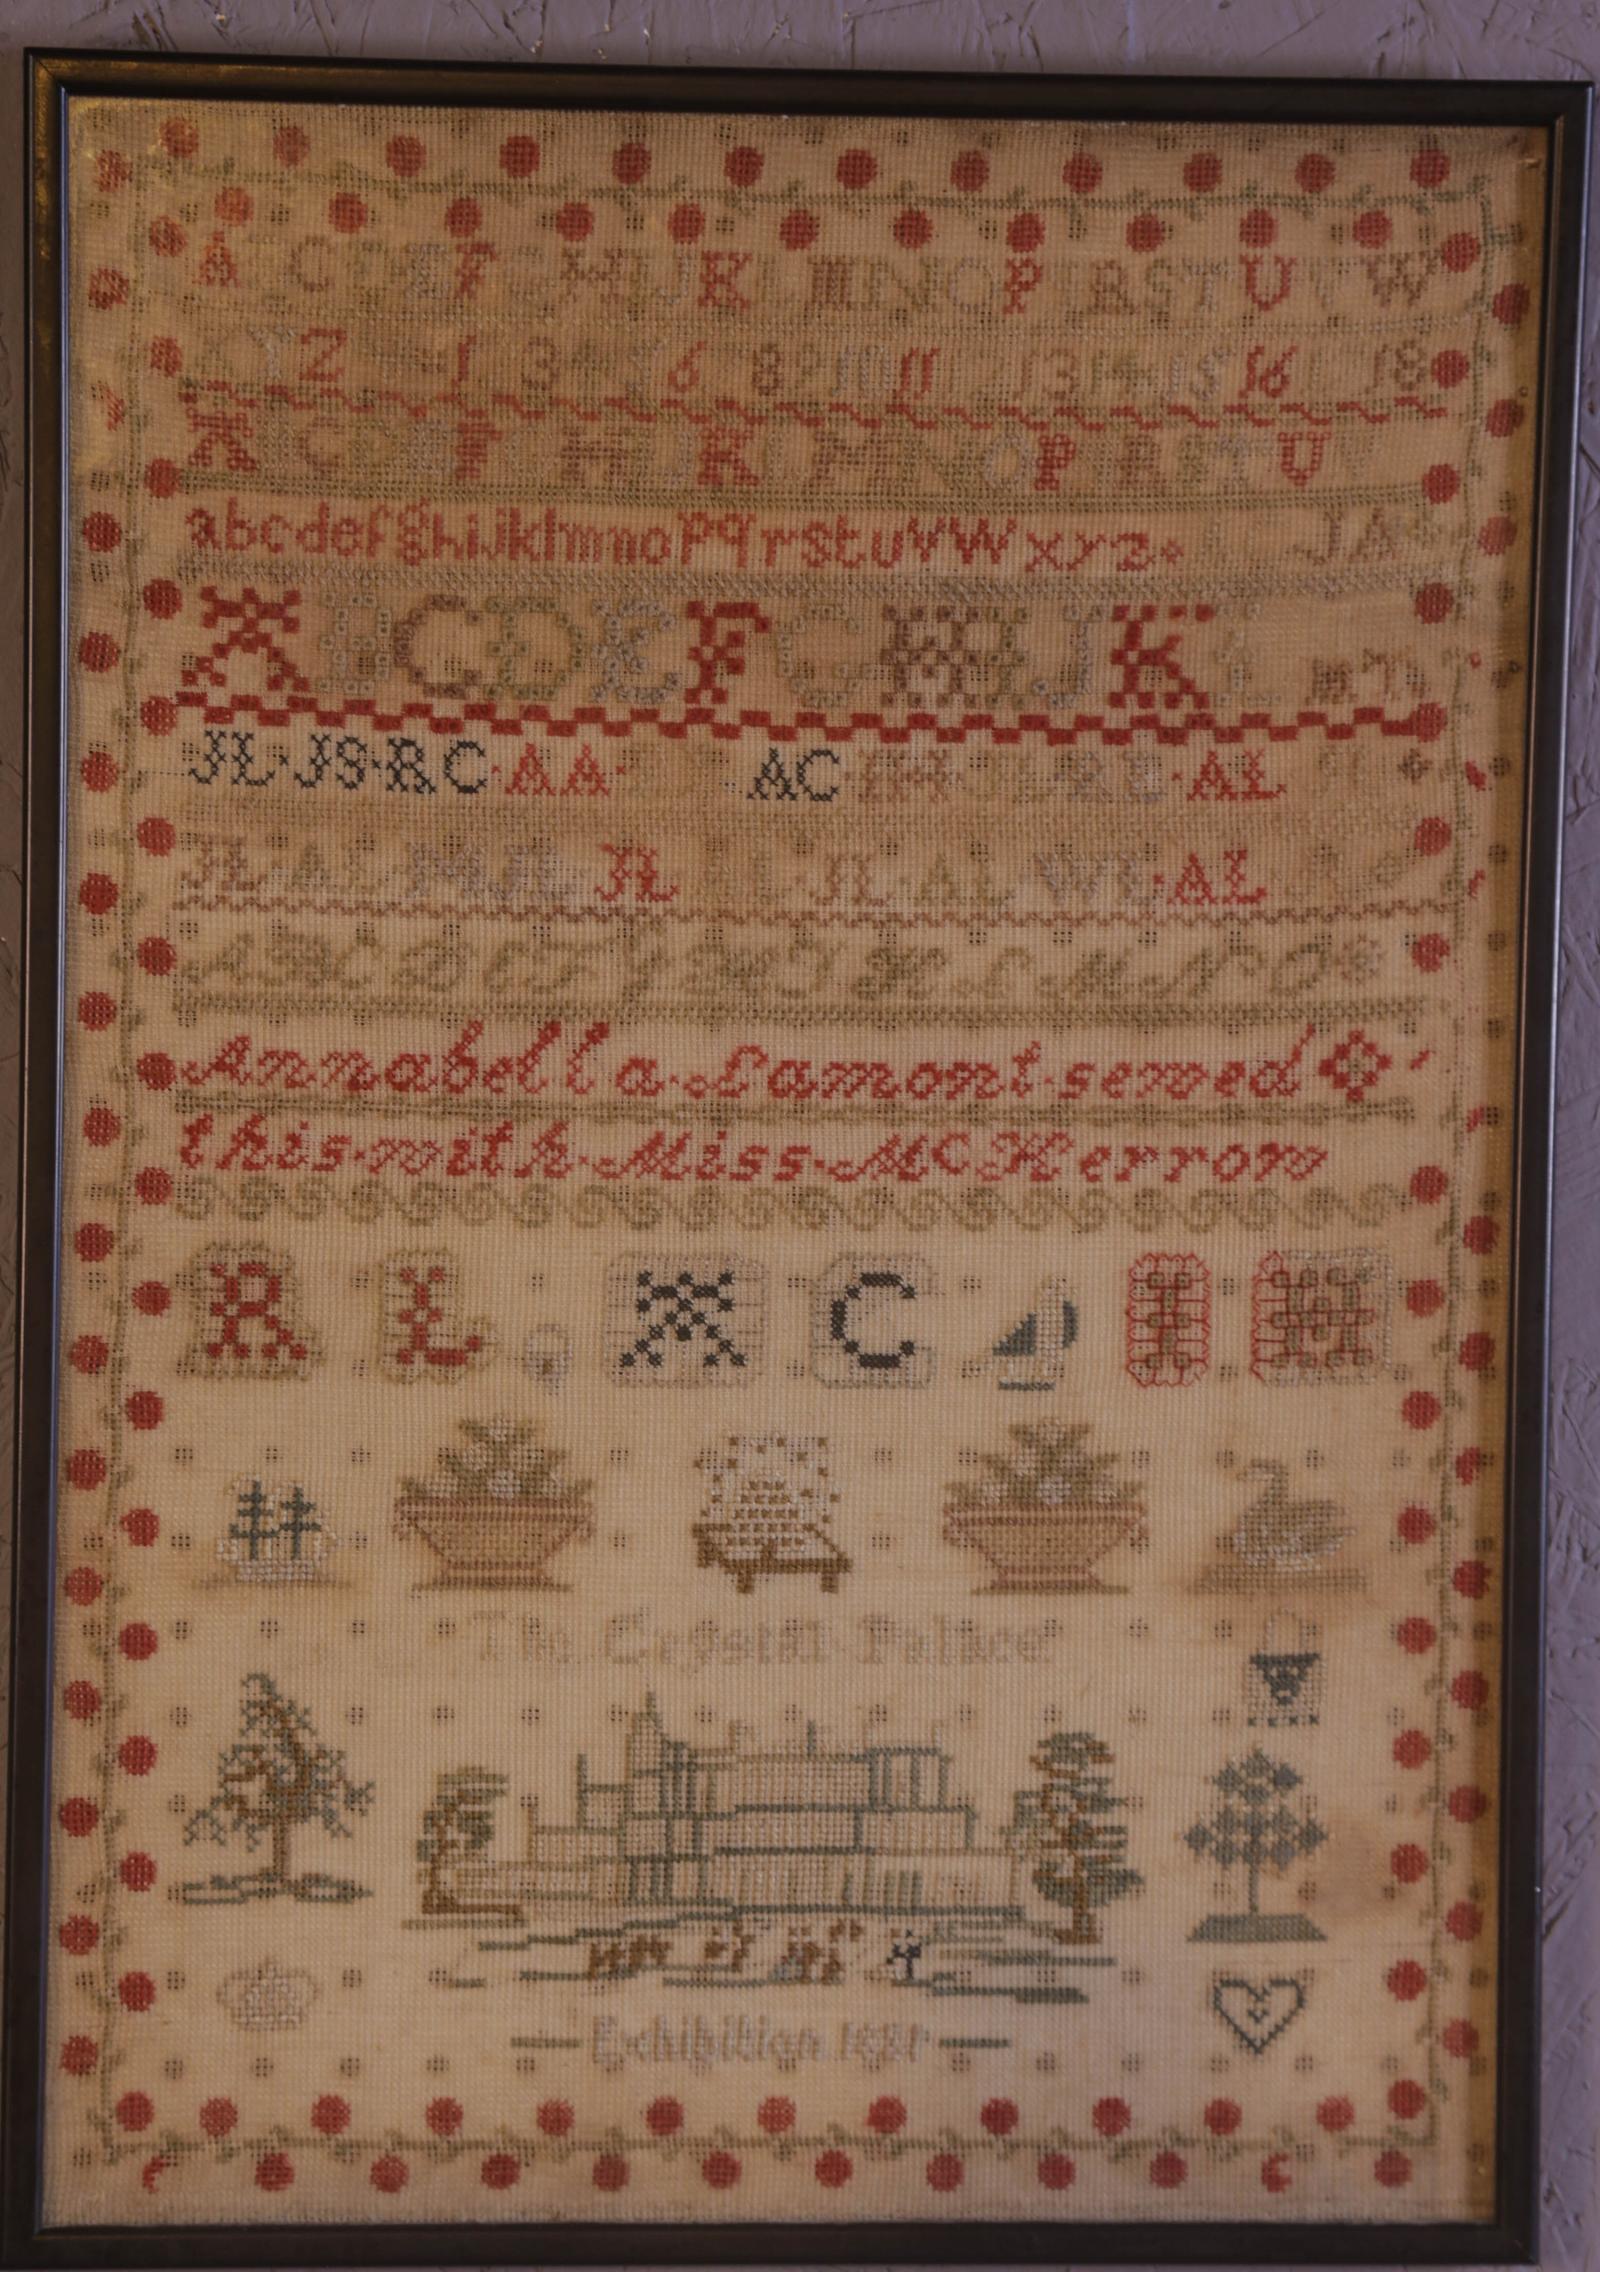 A C D E F G H I J K L M N O P R S T U V W
Y Z 1 3 4 6 8 9 10 11 12 13 14 15 16 18
A B C D E F G H I J K L M N O P R S T U V
abcdefghijklmnopqrstuvwxyz JA
A B C D E F G H I J K L
JL·JS·RC·AA· AC· IH RL·AL
JL·AL·M·JL·JL JL·AL·WL·AL
A B C D E F G H I K L M N O
Annabella·Lamont·sewed
this·with·Miss·McKerrow
R L A C I H
The Crystal Palace
Exhibition 1851